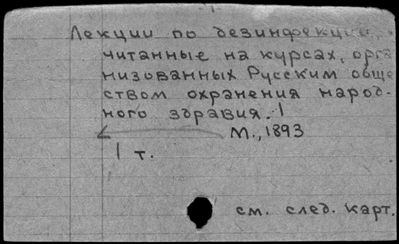 Лекции по дезинфекции,
читанные на курсах, орга
низованных Русским обще
ством охранения народ-
ного здравия.
М., 1893
1 т.
см. след. карт.